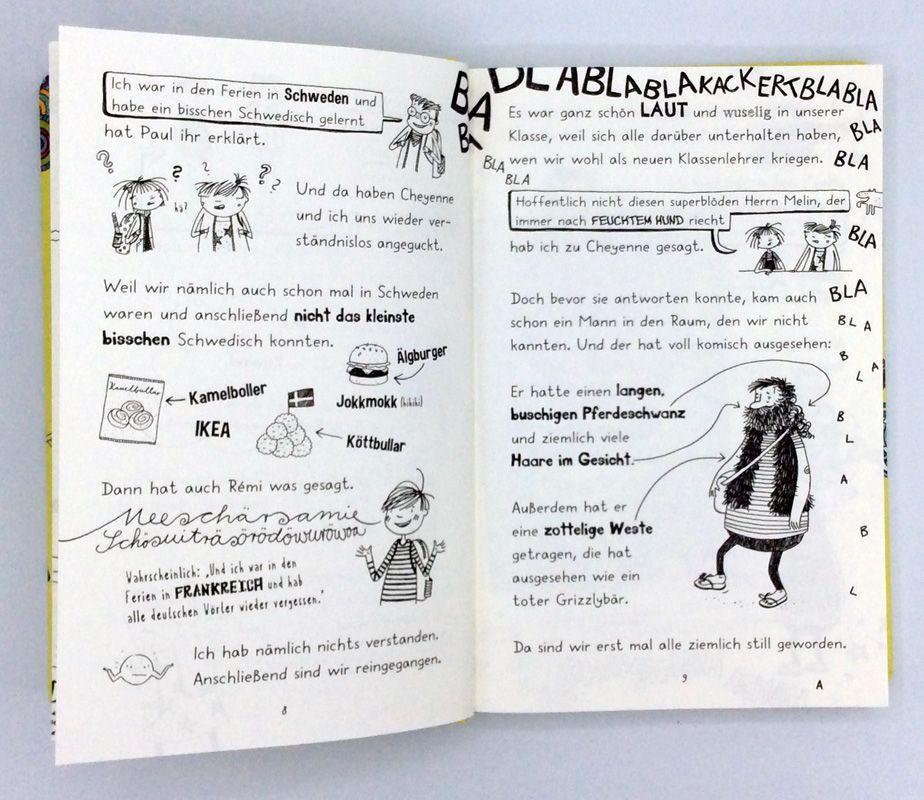 Ich war in den Ferien in Schweden und
habe ein bisschen Schwedisch gelernt
hat Paul ihr erklärt.
?
?
?
hä?
?
?
?
Und da haben Cheyenne
und ich uns wieder ver-
ständnislos angeguckt.
Weil wir nämlich auch schon mal in Schweden
waren und anschließend nicht das kleinste
bisschen Schwedisch konnten.
Älgburger
Kamelbullar
Kamelboller
IKEA
Jokkmokk (hihihi)
Köttbullar
Dann hat auch Rémi was gesagt.
Meeschärsamie
Schösuiträsörödöwuröwoa
Wahrscheinlich: „Und ich war in den
Ferien in FRANKREICH und hab
alle deutschen Vörler wieder vergessen."
Ich hab nämlich nichts verstanden.
Anschließend sind wir reingegangen.
8
BLABLABLAKACKERTBLABLA
BA
BA
BLA
BLA
Es war ganz schön LAUT und wuselig in unserer
Klasse, weil sich alle darüber unterhalten haben, BLA
wen wir wohl als neuen Klassenlehrer kriegen. BLA
Hoffentlich nicht diesen superblöden Herrn Melin, der
immer nach FEUCHTEM HUND riecht
BLA
hab ich zu Cheyenne gesagt.
Doch bevor sie antworten konnte, kam auch BLA
schon ein Mann in den Raum, den wir nicht BLA
kannten. Und der hat voll komisch ausgesehen:
B
L
A
Er hatte einen langen,
buschigen Pferdeschwanz
und ziemlich viele
Haare im Gesicht.
B
L
A
Außerdem hat er
eine zottelige Weste
getragen, die hat
ausgesehen wie ein
toter Grizzlybär.
B
L
Da sind wir erst mal alle ziemlich still geworden.
9
A